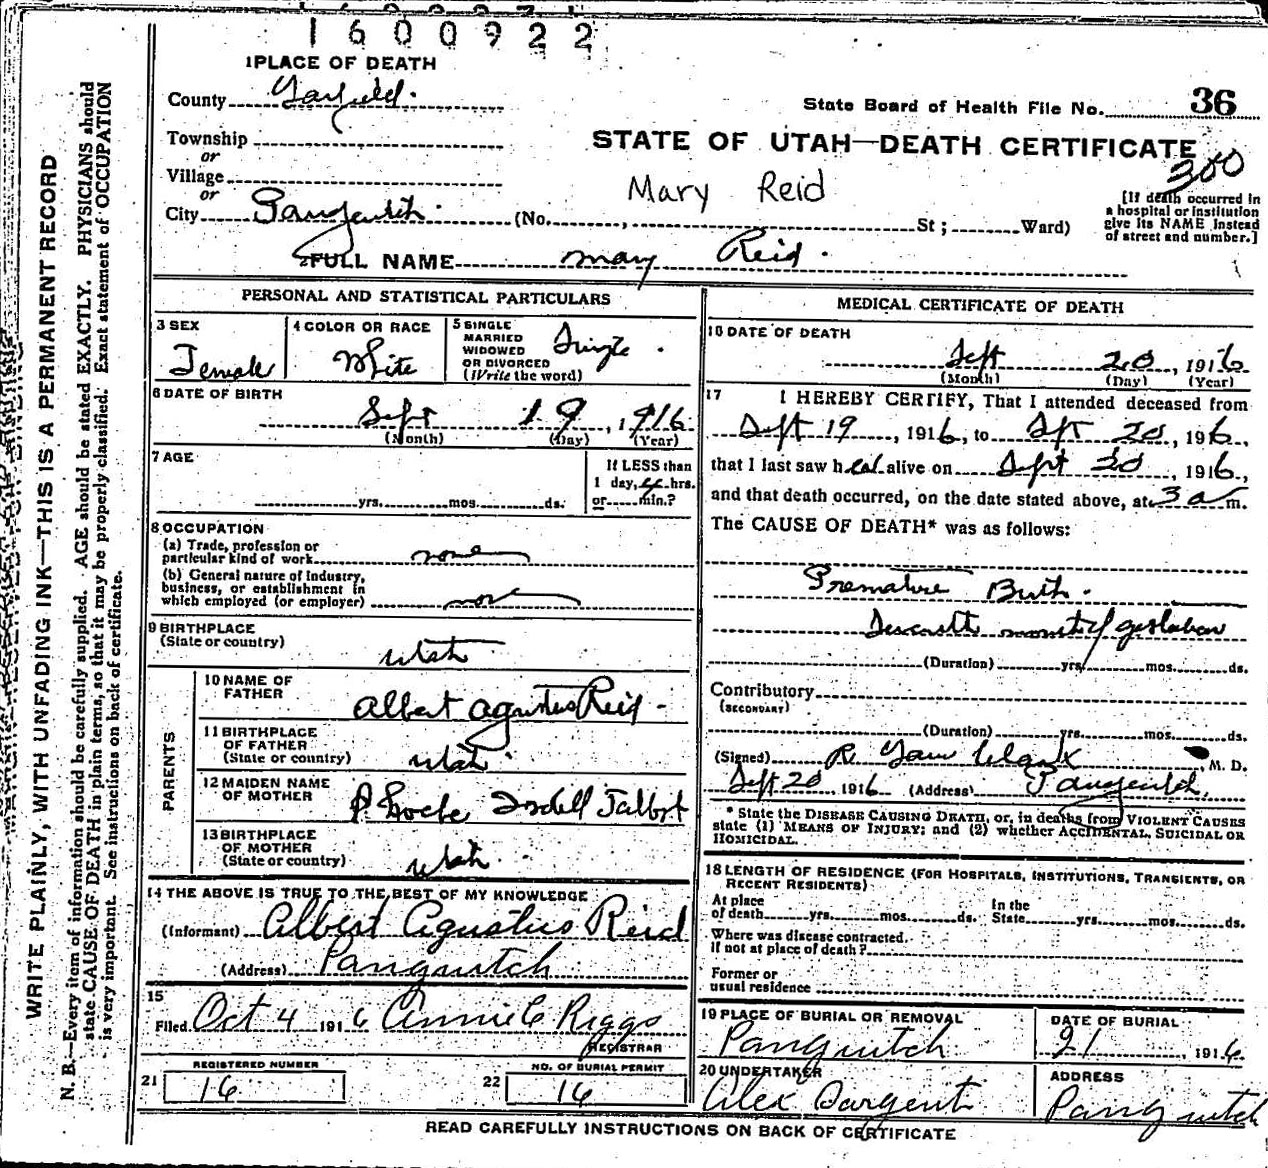 1600922
1 PLACE OF DEATH
County Garfield.
State Board of Health File No. 36
Township
or
STATE OF UTAH—DEATH CERTIFICATE
Village
or
Mary Reid
300
[If death occurred in
a hospital or institution
give its NAME instead
of street and number.]
City Panguitch. (No. , St ; Ward)
2 FULL NAME Mary Reid.
PERSONAL AND STATISTICAL PARTICULARS
3 SEX
Female
4 COLOR OR RACE
White
5 SINGLE
MARRIED
WIDOWED
OR DIVORCED
(Write the word)
Single.
6 DATE OF BIRTH
Sept 19, 1916
(Month) (Day) (Year)
7 AGE
yrs. mos. ds.
If LESS than
1 day, hrs.
or min.?
8 OCCUPATION
(a) Trade, profession or
particular kind of work none
(b) General nature of industry,
business, or establishment in
which employed (or employer) none
9 BIRTHPLACE
(State or country)
Utah
PARENTS
10 NAME OF
FATHER
Albert Agustus Reid
11 BIRTHPLACE
OF FATHER
(State or country) Utah.
12 MAIDEN NAME
OF MOTHER
Talbot
13 BIRTHPLACE
OF MOTHER
(State or country) Utah.
14 THE ABOVE IS TRUE TO THE BEST OF MY KNOWLEDGE
(Informant) Albert Agustus Reid
(Address) Panguitch
15
Filed Oct 4 1916 Annie C Riggs
REGISTRAR
REGISTERED NUMBER
21 16
NO. OF BURIAL PERMIT
22 16
MEDICAL CERTIFICATE OF DEATH
16 DATE OF DEATH
Sept 20, 1916
(Month) (Day) (Year)
17 I HEREBY CERTIFY, That I attended deceased from
Sept 19, 1916, to Sept 20, 1916,
that I last saw her alive on Sept 20, 1916,
and that death occurred, on the date stated above, at 3 a m.
The CAUSE OF DEATH* was as follows:
Premature Birth.
month of gestation
(Duration) yrs. mos. ds.
Contributory
(SECONDARY)
(Duration) yrs. mos. ds.
(Signed) R Clark, M. D.
Sept 20, 1916 (Address) Panguitch,
* State the DISEASE CAUSING DEATH, or, in deaths from VIOLENT CAUSES
state (1) MEANS OF INJURY; and (2) whether ACCIDENTAL, SUICIDAL OR
HOMICIDAL.
18 LENGTH OF RESIDENCE (FOR HOSPITALS, INSTITUTIONS, TRANSIENTS, OR
RECENT RESIDENTS)
At place
of death yrs. mos. ds.
In the
State yrs. mos. ds.
Where was disease contracted.
if not at place of death?
Former or
usual residence
19 PLACE OF BURIAL OR REMOVAL
Panguitch
DATE OF BURIAL
21, 1916
20 UNDERTAKER
Alex Sargent
ADDRESS
Panguitch
READ CAREFULLY INSTRUCTIONS ON BACK OF CERTIFICATE
WRITE PLAINLY, WITH UNFADING INK—THIS IS A PERMANENT RECORD
N. B.—Every item of information should be carefully supplied. AGE should be stated EXACTLY. PHYSICIANS should
state CAUSE OF DEATH in plain terms, so that it may be properly classified. Exact statement of OCCUPATION
is very important. See instructions on back of certificate.